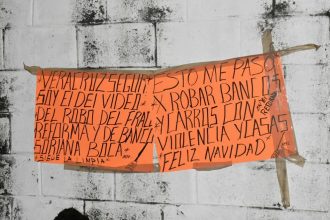 VERACRUZ SEGURO
SOY EL DEL VIDEO
DEL ROBO DEL FRAC.
REFORMA Y DE BANCA
SORIANA BOCA
"SIGUE LA LIMPIA"
ESTO ME PASO
X ROBAR BANCOS
Y CARROS CON
VIOLENCIA Y CASAS
FELIZ NAVIDAD